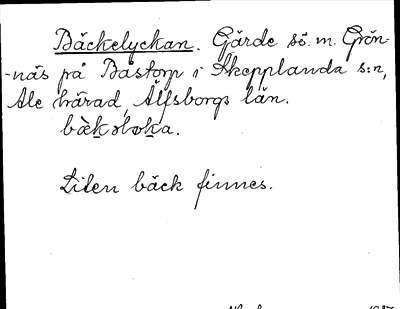 Bäckelyckan. Gärde sö. m. Grön-
-näs på Båstorp i Skepplanda s:n,
Ale härad, Älfsborgs län.
Liten bäck finnes.